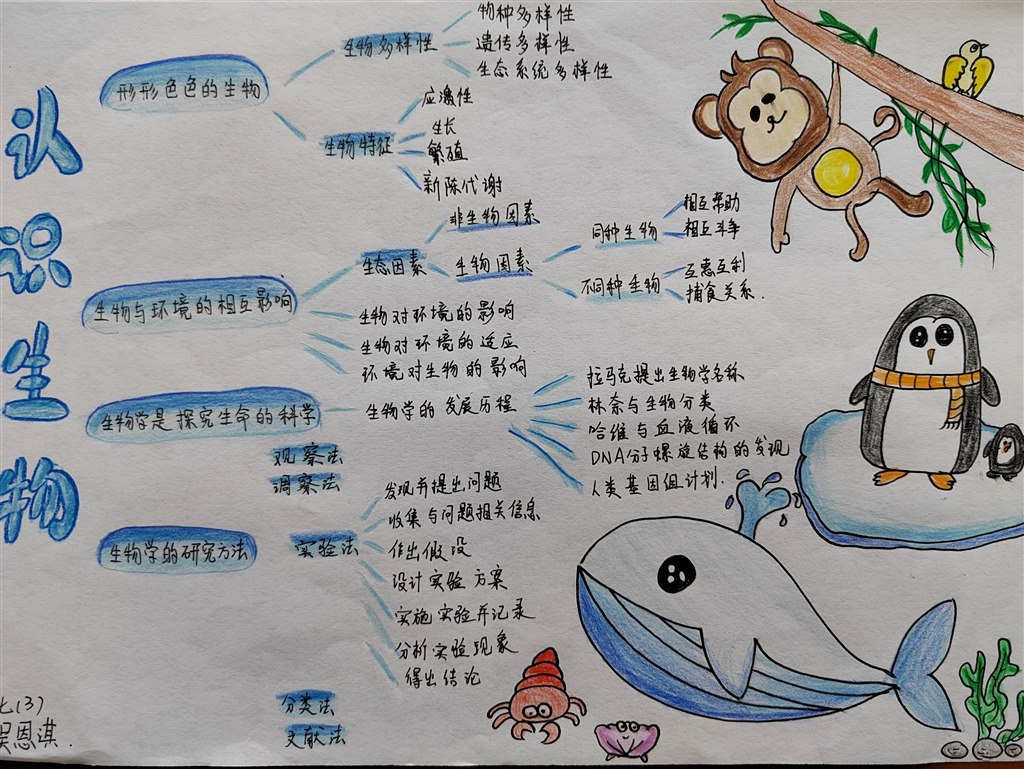 认识生物
形形色色的生物
生物多样性
物种多样性
遗传多样性
生态系统多样性
生物特征
应激性
生长
繁殖
新陈代谢
生物与环境的相互影响
生态因素
非生物因素
生物因素
同种生物
相互帮助
相互斗争
不同种生物
互惠互利
捕食关系.
生物对环境的影响
生物对环境的适应
环境对生物的影响
生物学是探究生命的科学
生物学的发展历程
拉马克提出生物学名称
林奈与生物分类
哈维与血液循环
DNA分子螺旋结构的发现
人类基因组计划.
生物学的研究方法
观察法
调察法
实验法
发现并提出问题
收集与问题相关信息
作出假设
设计实验方案
实施实验并记录
分析实验现象
得出结论
分类法
文献法
七(3)
吴恩淇.